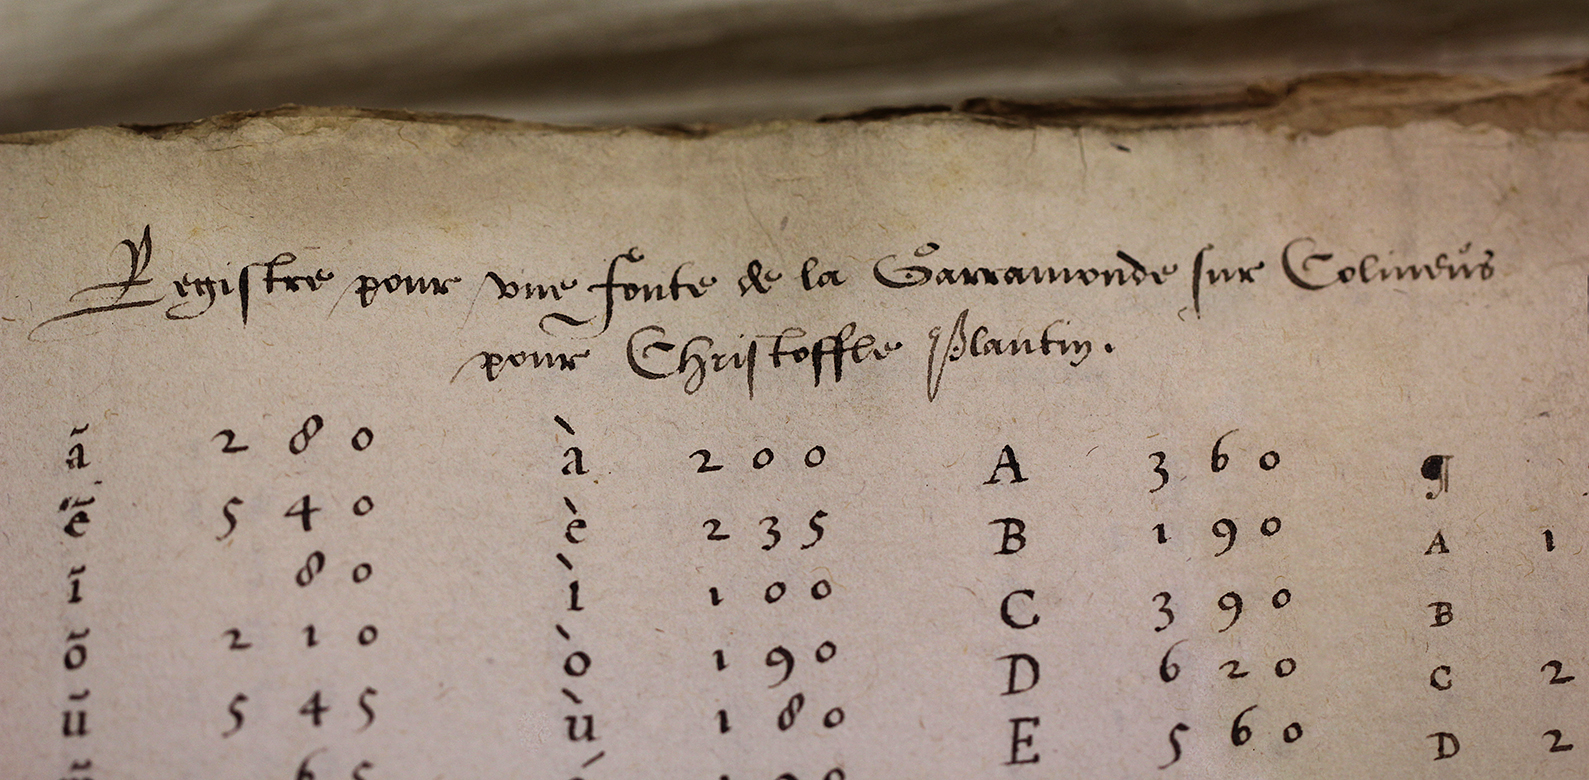 Registre pour vne fonte de la Garramonde sur Colineus
pour Christoffle Plantin.
ã 280 à 200 A 360 ¶
ẽ 540 è 235 B 190 A 1
ĩ 80 ì 100 C 390 B
õ 210 ò 190 D 620 C 2
ũ 545 ù 180 E 560 D 2